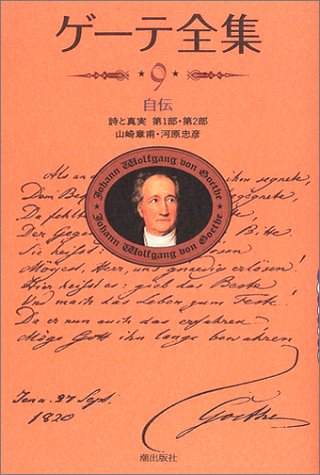 ゲーテ全集
9
自伝
詩と真実 第1部・第2部
山崎章甫・河原忠彦
Johann Wolfgang von Goethe
Johann Wolfgang von Goethe
Als an d ihm segnete,
Dem Beg gegnete,
Da fehlte
Der Gegen Bitte.
Sie heißt lösen
Möget, Herr, uns gnädig erlösen!
Hier heißt es: gieb das Beste
Und mach das Leben zum Feste!
Da er nun auch das erfahren
Möge Gott ihn lange bewahren
Jena 27 Sept.
1820
Goethe
潮出版社